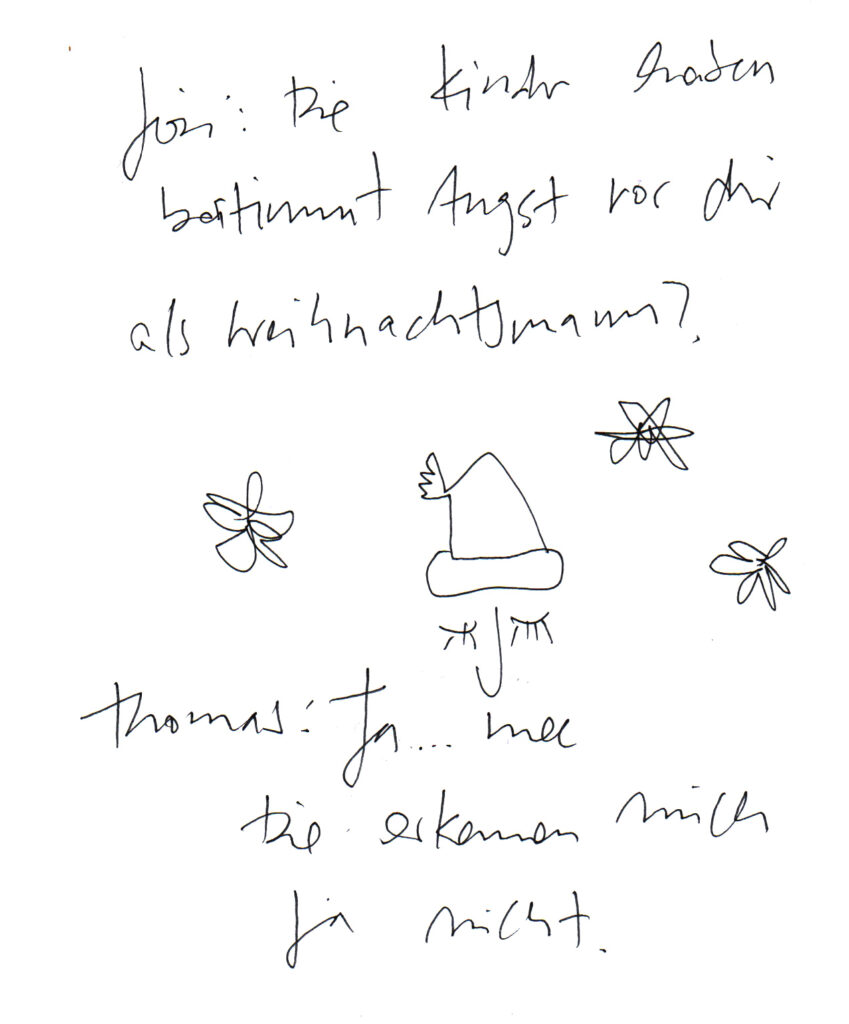 Jöri: Die Kinder haben
bestimmt Angst vor dir
als Weihnachtsmann?
Thomas: Ja... nee
Die erkennen mich
ja nicht.